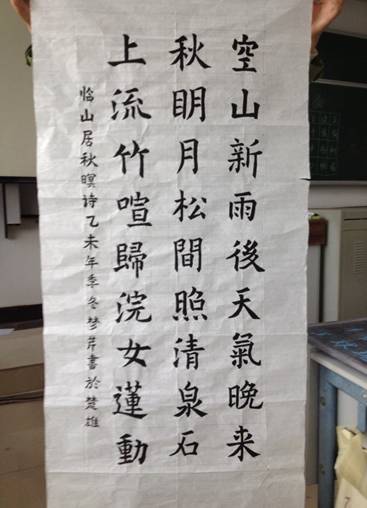 空山新雨後天氣晚来
秋眀月松間照清泉石
上流竹喧歸浣女蓮動
临山居秋暝詩乙未年季冬梦芹書於楚雄